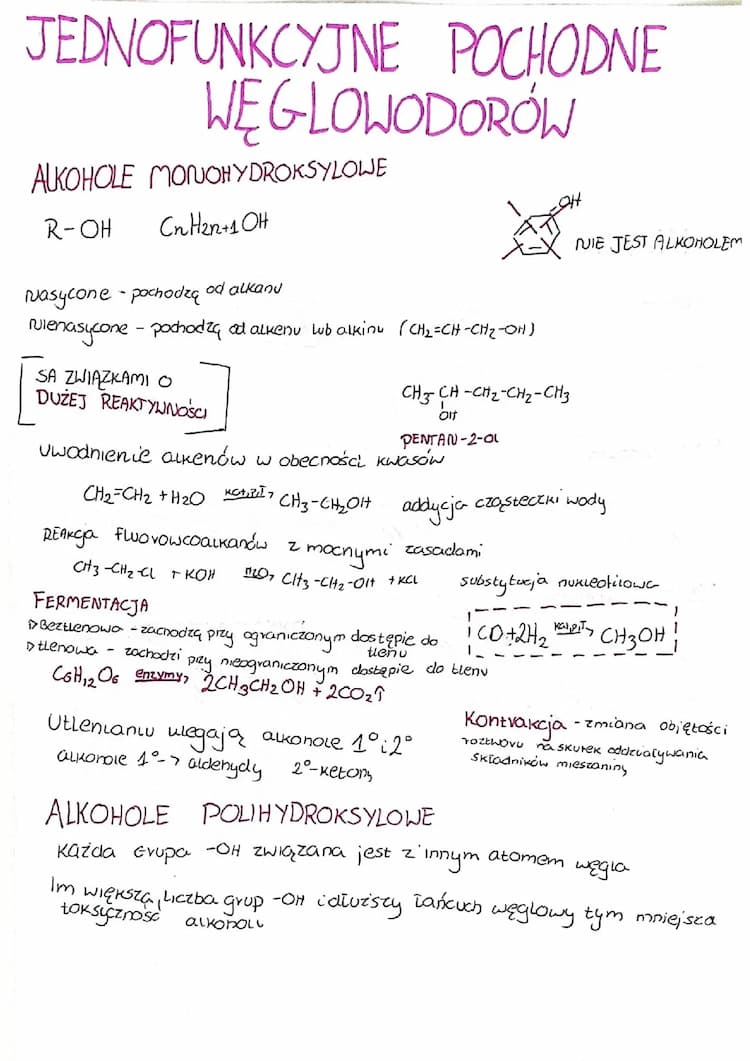 JEDNOFUNKCYJNE POCHODNE
WĘGLOWODORÓW
ALKOHOLE MONOHYDROKSYLOWE
R-OH CnH2n+1OH
OH
NIE JEST ALKOHOLEM
Nasycone - pochodzą od alkanu
Nienasycone - pochodzą od alkenu lub alkinu (CH2=CH-CH2-OH)
SA ZWIĄZKAMI O
DUŻEJ REAKTYWNOŚCI
CH3-CH-CH2-CH2-CH3
OH
PENTAN-2-OL
Uwodnienie alkenów w obecności kwasów
CH2=CH2 + H2O kat,p,T→ CH3-CH2OH addycja cząsteczki wody
REAkcja fluorowcoalkanów z mocnymi zasadami
CH3-CH2-Cl + KOH H2O→ CH3-CH2-OH + KCl substytucja nukleofilowa
FERMENTACJA
▷ Beztlenowa - zachodzą przy ograniczonym dostępie do
tlenu
▷ tlenowa - zachodzi przy nieograniczonym dostępie do tlenu
C6H12O6 enzymy→ 2CH3CH2OH + 2CO2↑
CO+2H2 kat,p,T→ CH3OH
Utlenianiu ulegają alkohole 1° i 2°
alkohole 1° -> aldehydy 2°-ketony
Kontrakcja - zmiana objętości
roztworu na skutek oddziaływania
składników mieszaniny
ALKOHOLE POLIHYDROKSYLOWE
Każda Grupa -OH związana jest z innym atomem węgla
Im większa liczba grup -OH i dłuższy łańcuch węglowy tym mniejsza
toksyczność alkoholu